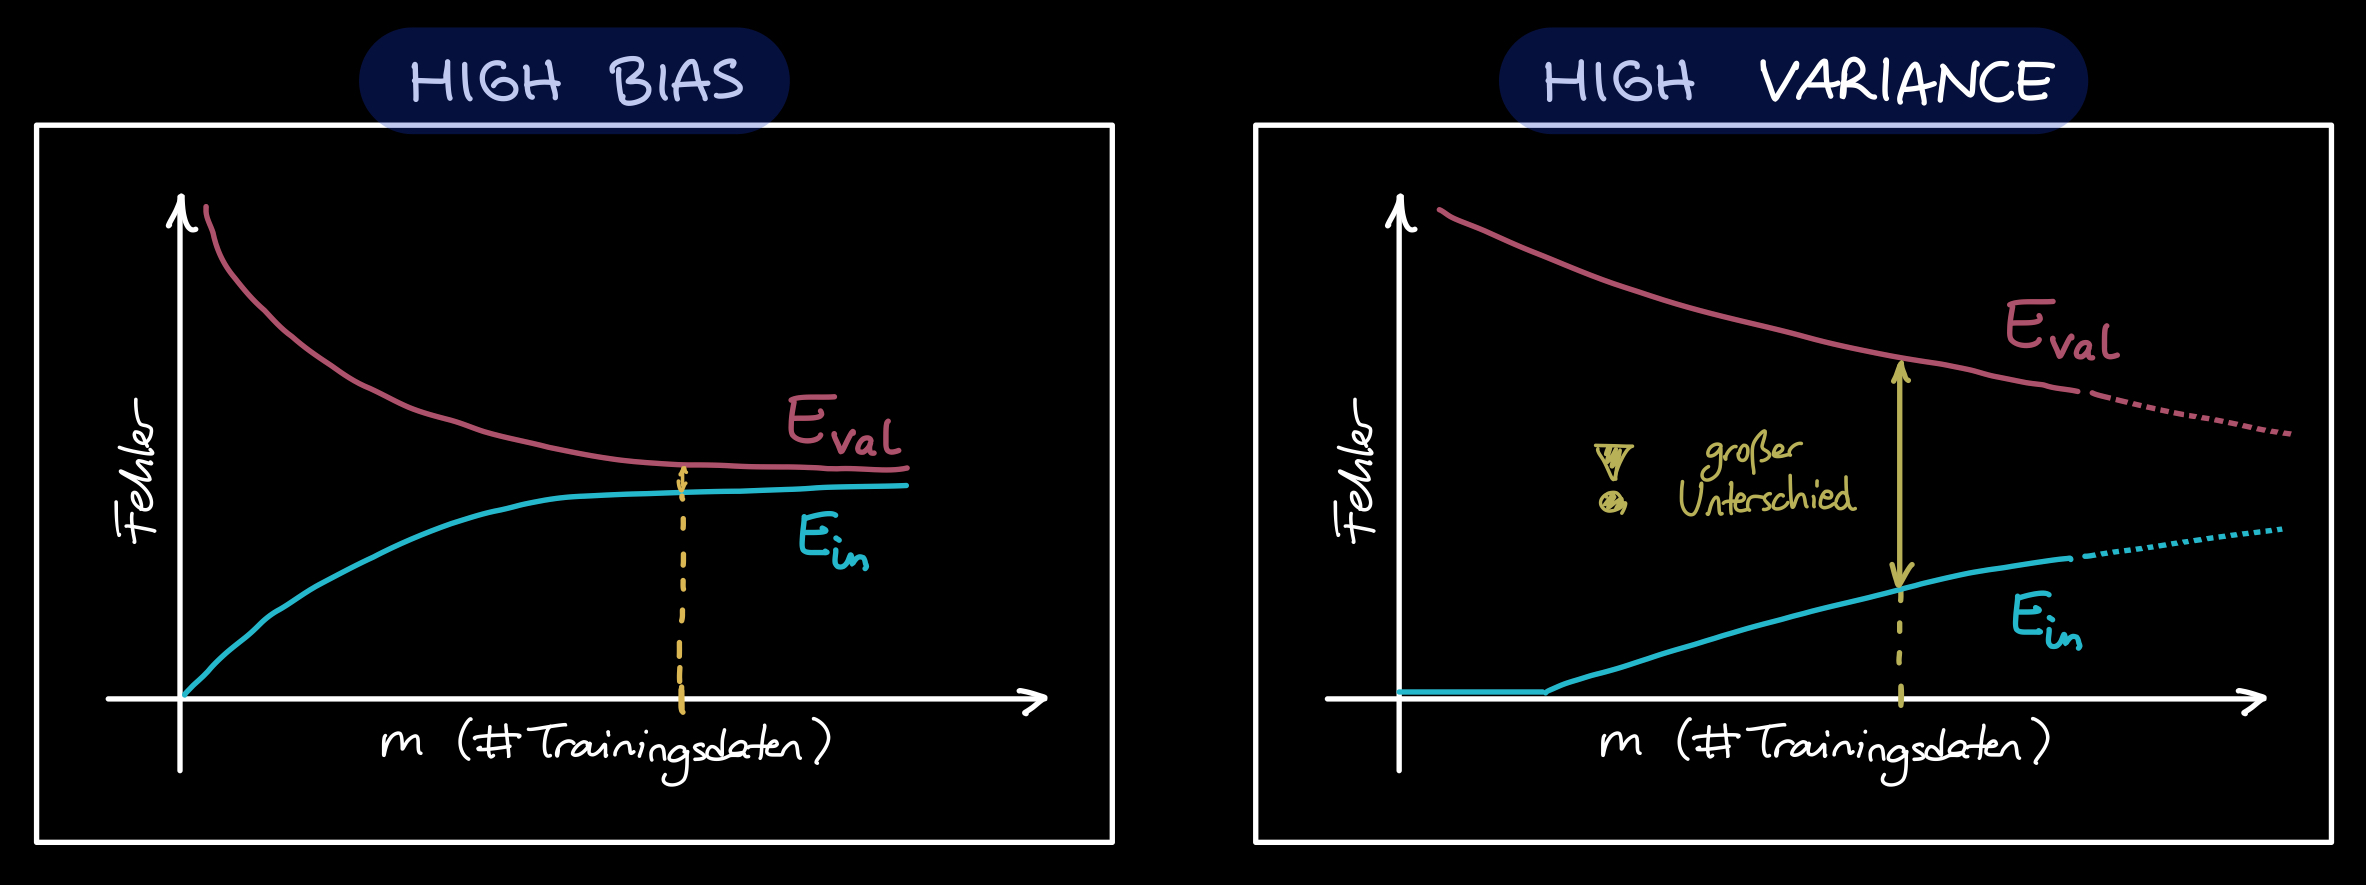 HIGH BIAS
Fehler
E_val
E_in
m (# Trainingsdaten)
HIGH VARIANCE
Fehler
E_val
! großer
Unterschied
E_in
m (# Trainingsdaten)